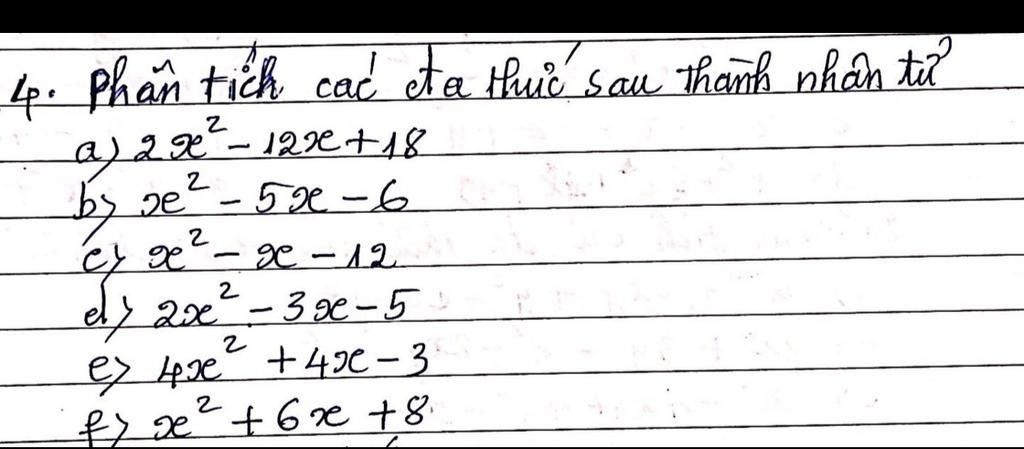 4. Phân tích các đa thức sau thành nhân tử
a) 2x² - 12x + 18
b) x² - 5x - 6
c) x² - x - 12
d) 2x² - 3x - 5
e) 4x² + 4x - 3
f) x² + 6x + 8